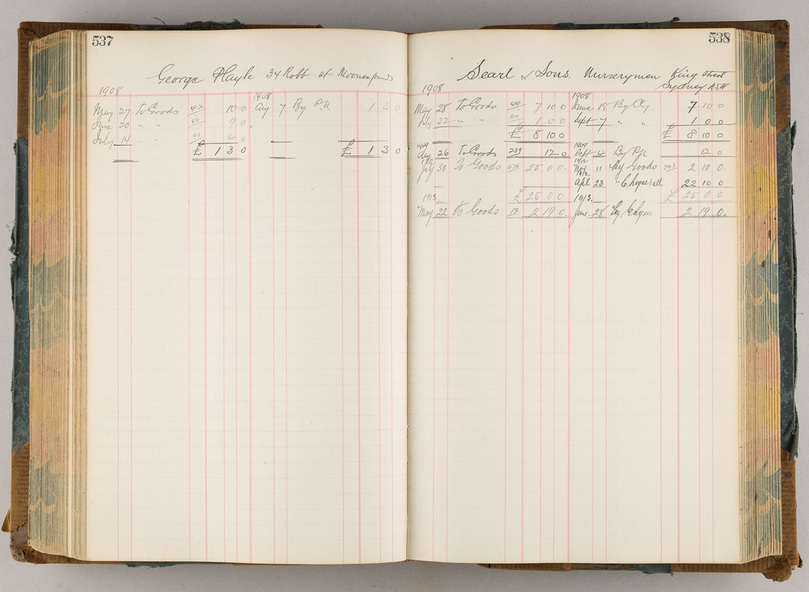 537
George Playle 34 Robt St Moonee ponds
1908
1908
May 27 to Goods 42 10 0 Aug 7 By 1 3 0
June 20 " " 9 0
July 14 " " 4 0
£ 1 3 0 £ 1 3 0
538
Searl & Sons Nurserymen King Street
Sydney NSW
1908
1908
May 28 To Goods 7 10 0 June 18 By 7 10 0
22 " " 1 0 0 Sept 7 " " 1 0 0
£ 8 10 0 £ 8 10 0
Aug 26 To Goods 239 12 0 Sept By 12 0
July 30 To Goods 25 0 0 Nov 11 By Goods 2 10 0
Apl 23 " 22 10 0
£ 25 0 0 £ 25 0 0
1913
1913
May 22 To Goods 2 19 0 June 28 By 2 19 0